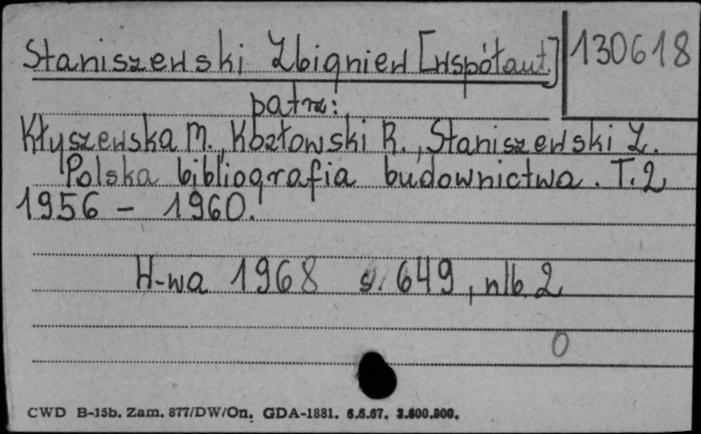 Staniszewski Zbigniew [współaut.]
130618
patrz:
Kłyszewska M., Kozłowski R., Staniszewski Z.
Polska bibliografia budownictwa. T.2
1956 - 1960.
W-wa 1968 s. 649, nlb. 2
0
CWD B-15b. Zam. 877/DW/On. GDA-1881. 6.6.67. 3.600.000.